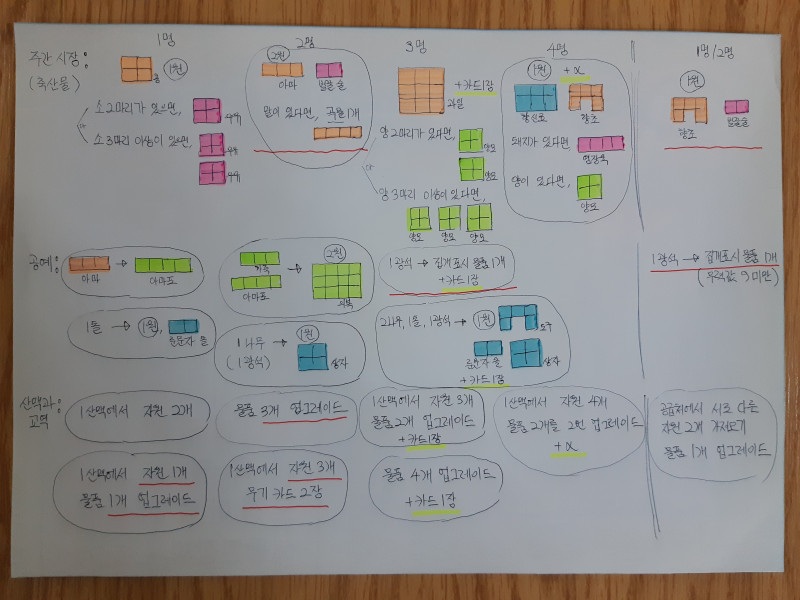 1명
2명
3명
4명
1명/2명
주간 시장:
(축산물)
1원
우유
소 2마리가 있으면,
우유
소 3마리 이상이 있으면,
우유
우유
2원
아마
벌꿀 술
밀이 있다면, 곡물 1개
+카드1장
과일
양 2마리가 있다면,
양모
양모
양 3마리 이상이 있다면,
양모
양모
양모
1원
+α
향신료
건초
돼지가 있다면,
염장육
양이 있다면,
양모
1원
건초
벌꿀술
공예:
아마
→
아마포
가죽
아마포
→
2원
의복
1광석 → 집게표시 물품 1개
+카드1장
1광석 → 집게표시 물품 1개
(무력값 9 미만)
1돌 → 1원,
룬문자 돌
1나무 →
(1광석)
1원
상자
2나무, 1돌, 1광석 →
1원
도구
룬문자 돌
상자
+카드1장
산맥과:
교역
1산맥에서 자원 2개
물품 3개 업그레이드
1산맥에서 자원 3개
물품 2개 업그레이드
+카드1장
1산맥에서 자원 4개
물품 2개를 2번 업그레이드
+α
공급처에서 서로 다른
자원 2개 가져오기
물품 1개 업그레이드
1산맥에서 자원 1개
물품 1개 업그레이드
1산맥에서 자원 3개
무기 카드 2장
물품 4개 업그레이드
+카드1장